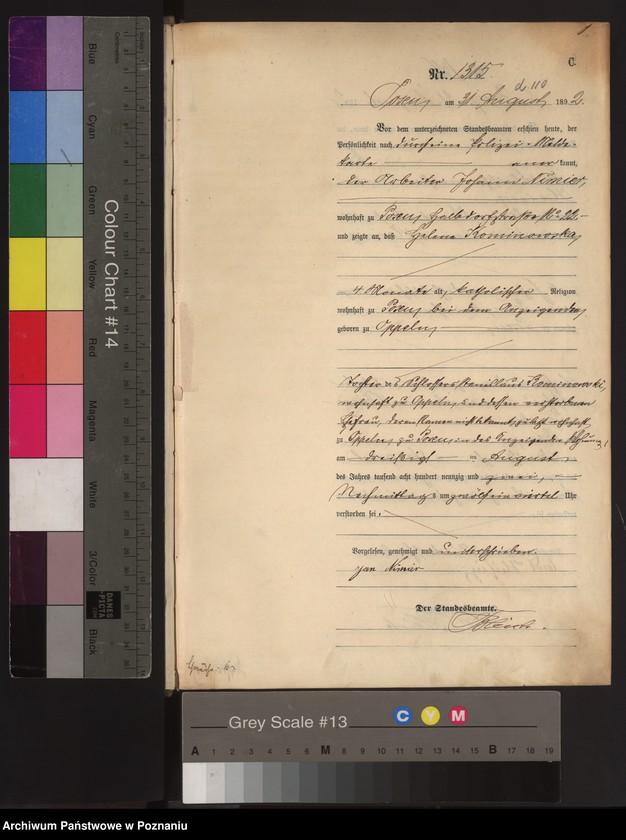 1.
C.
Nr. 1315.
d 110
Posen, am 31 August 1892.
Vor dem unterzeichneten Standesbeamten erschien heute, der
Persönlichkeit nach durch eine Polizei-Melde-
karte anerkannt,
der Arbeiter Johann Nimier,
wohnhaft zu Posen, Halbdorfstraße No 22.
und zeigte an, daß Helene Kominowska,
4 Monate alt, katholischer Religion
wohnhaft zu Posen bei dem Anzeigenden,
geboren zu Oppeln,
Tochter des Schlossers Stanislaus Kominowski,
wohnhaft zu Oppeln, und dessen verstorbenen
Ehefrau, deren Namen nicht bekannt, zuletzt wohnhaft
zu Oppeln, zu Posen, in des Anzeigenden Wohnung,
am dreißigsten August
des Jahres tausend acht hundert neunzig und zwei,
Nachmittags um zwölfeinviertel Uhr
verstorben sei.
Vorgelesen, genehmigt und unterschrieben.
Jan Nimier
Der Standesbeamte.
Colour Chart #14
Blue
Cyan
Green
Yellow
Red
Magenta
White
3/Color
Black
Centimetres
DANES
-PICTA
.COM
Grey Scale #13
C Y M
A 1 2 3 4 5 6 M 8 9 10 11 12 13 14 15 B 17 18 19
Archiwum Państwowe w Poznaniu